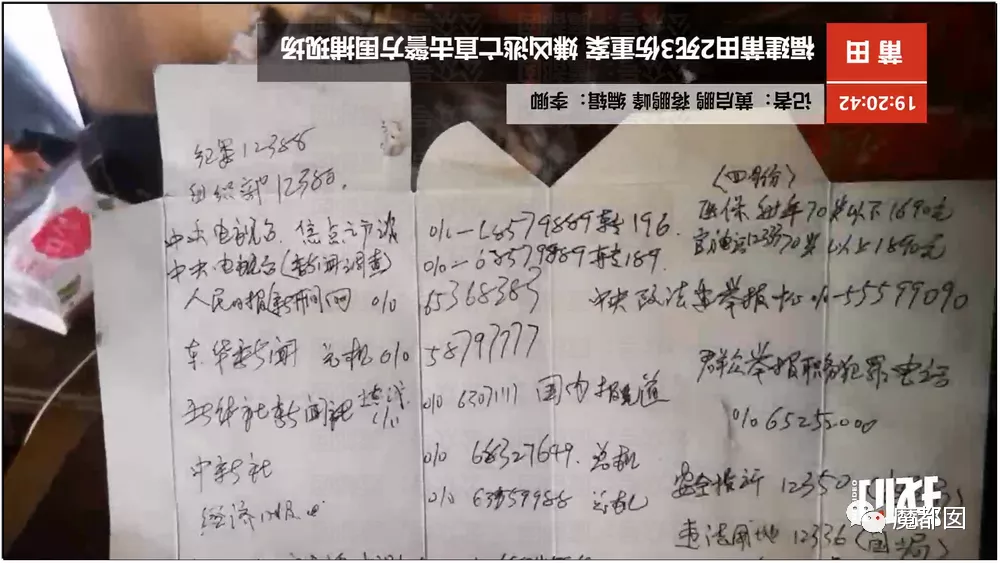 福建莆田2死3伤重案 嫌凶逃亡直击警方围捕现场
莆田
记者：黄启鹏 蒋鹏峰 编辑：李卿
19:20:42
纪委12388
组织部12380.
中央电视台.焦点访谈 010-68579889转196
中央电视台(新闻调查) 010-68579889转189
人民日报新闻网 010 65368383
新闻 总机010 58797777
新华社新闻社 热线 010 63071111 国内报道
中新社 010 68327649. 总机
经济日报 010 总机
(四月份)
医保 年70岁以下1690元
70岁以上1890元
中央政法委举报中心 010-55599090
群众举报职务犯罪电话
010 65252000
安全投诉 12350
违法用地 12336(国土局)
魔都囡